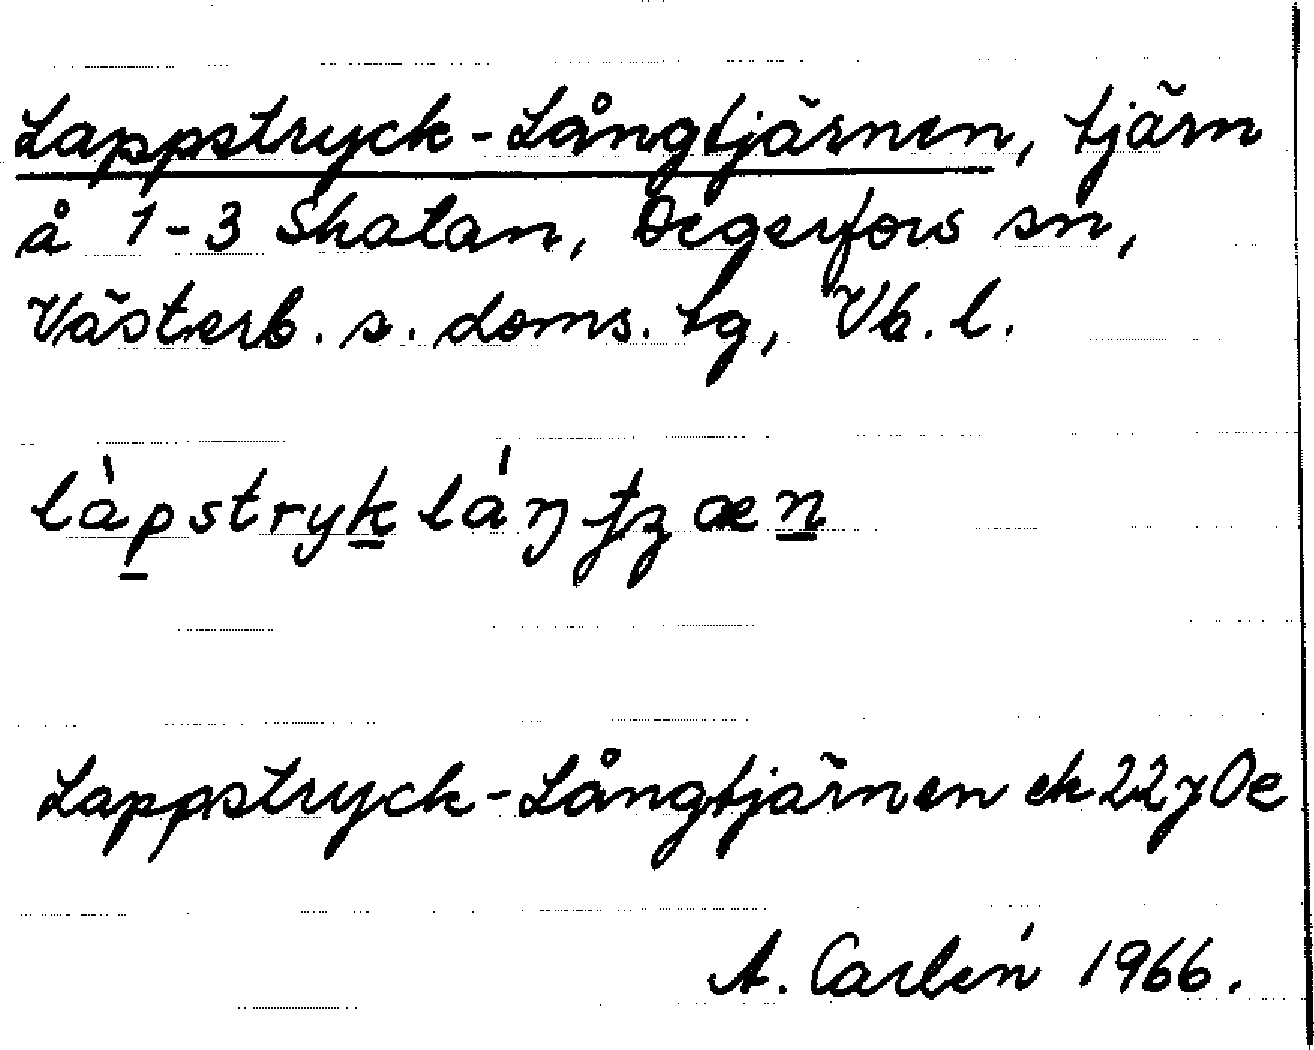 Lappstryck-Långtjärnen, tjärn
å 1-3 Skatan, Degerfors sn,
Västerb. s. doms. tg, Vb. l.
làpstryk láŋ æn
Lappstryck-Långtjärnen ek 22 y De
A. Carlén 1966.